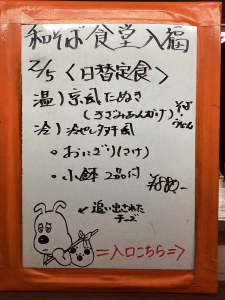 和そば食堂入福
2/5〈日替定食〉
温）京風たぬき
(きざみあんかけ) そば・うどん
冷）冷やし
・おにぎり(さけ)
・小鉢2品付 ¥880-
←追い出された
チーズ
=入口こちら=>